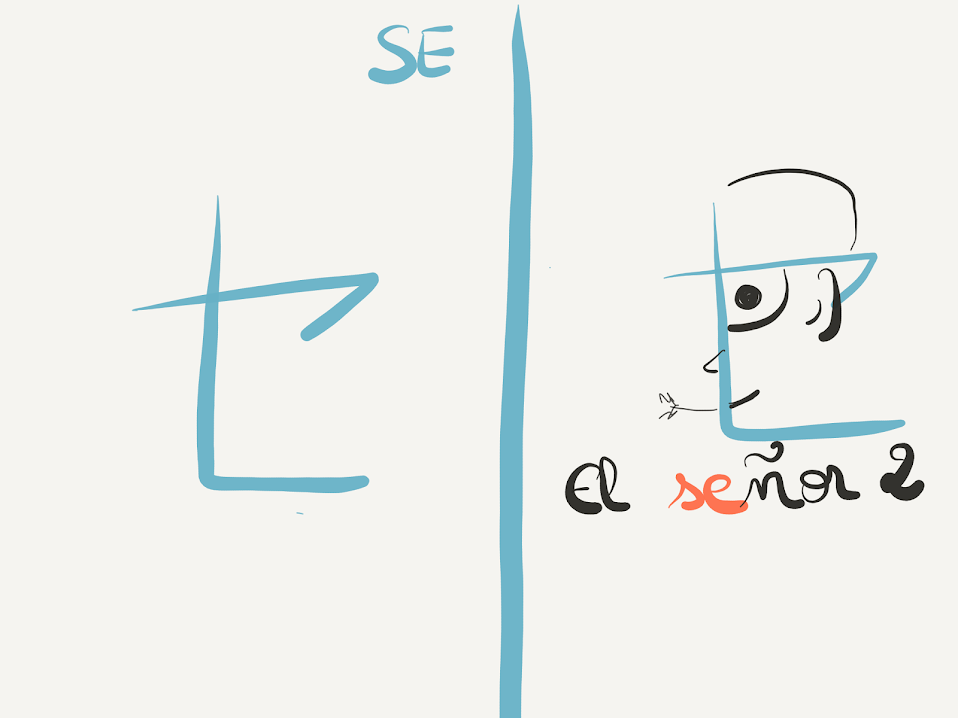 SE
セ
El señor 2